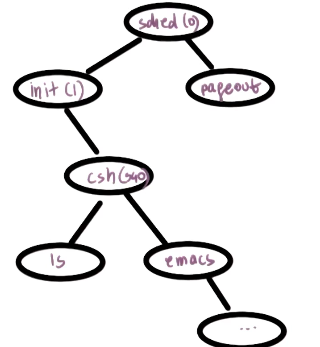 sched(0)
init(1)
pageout
csh(540)
ls
emacs
...